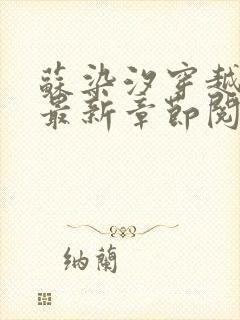 蘇染汐穿越
最新章節閱
納蘭